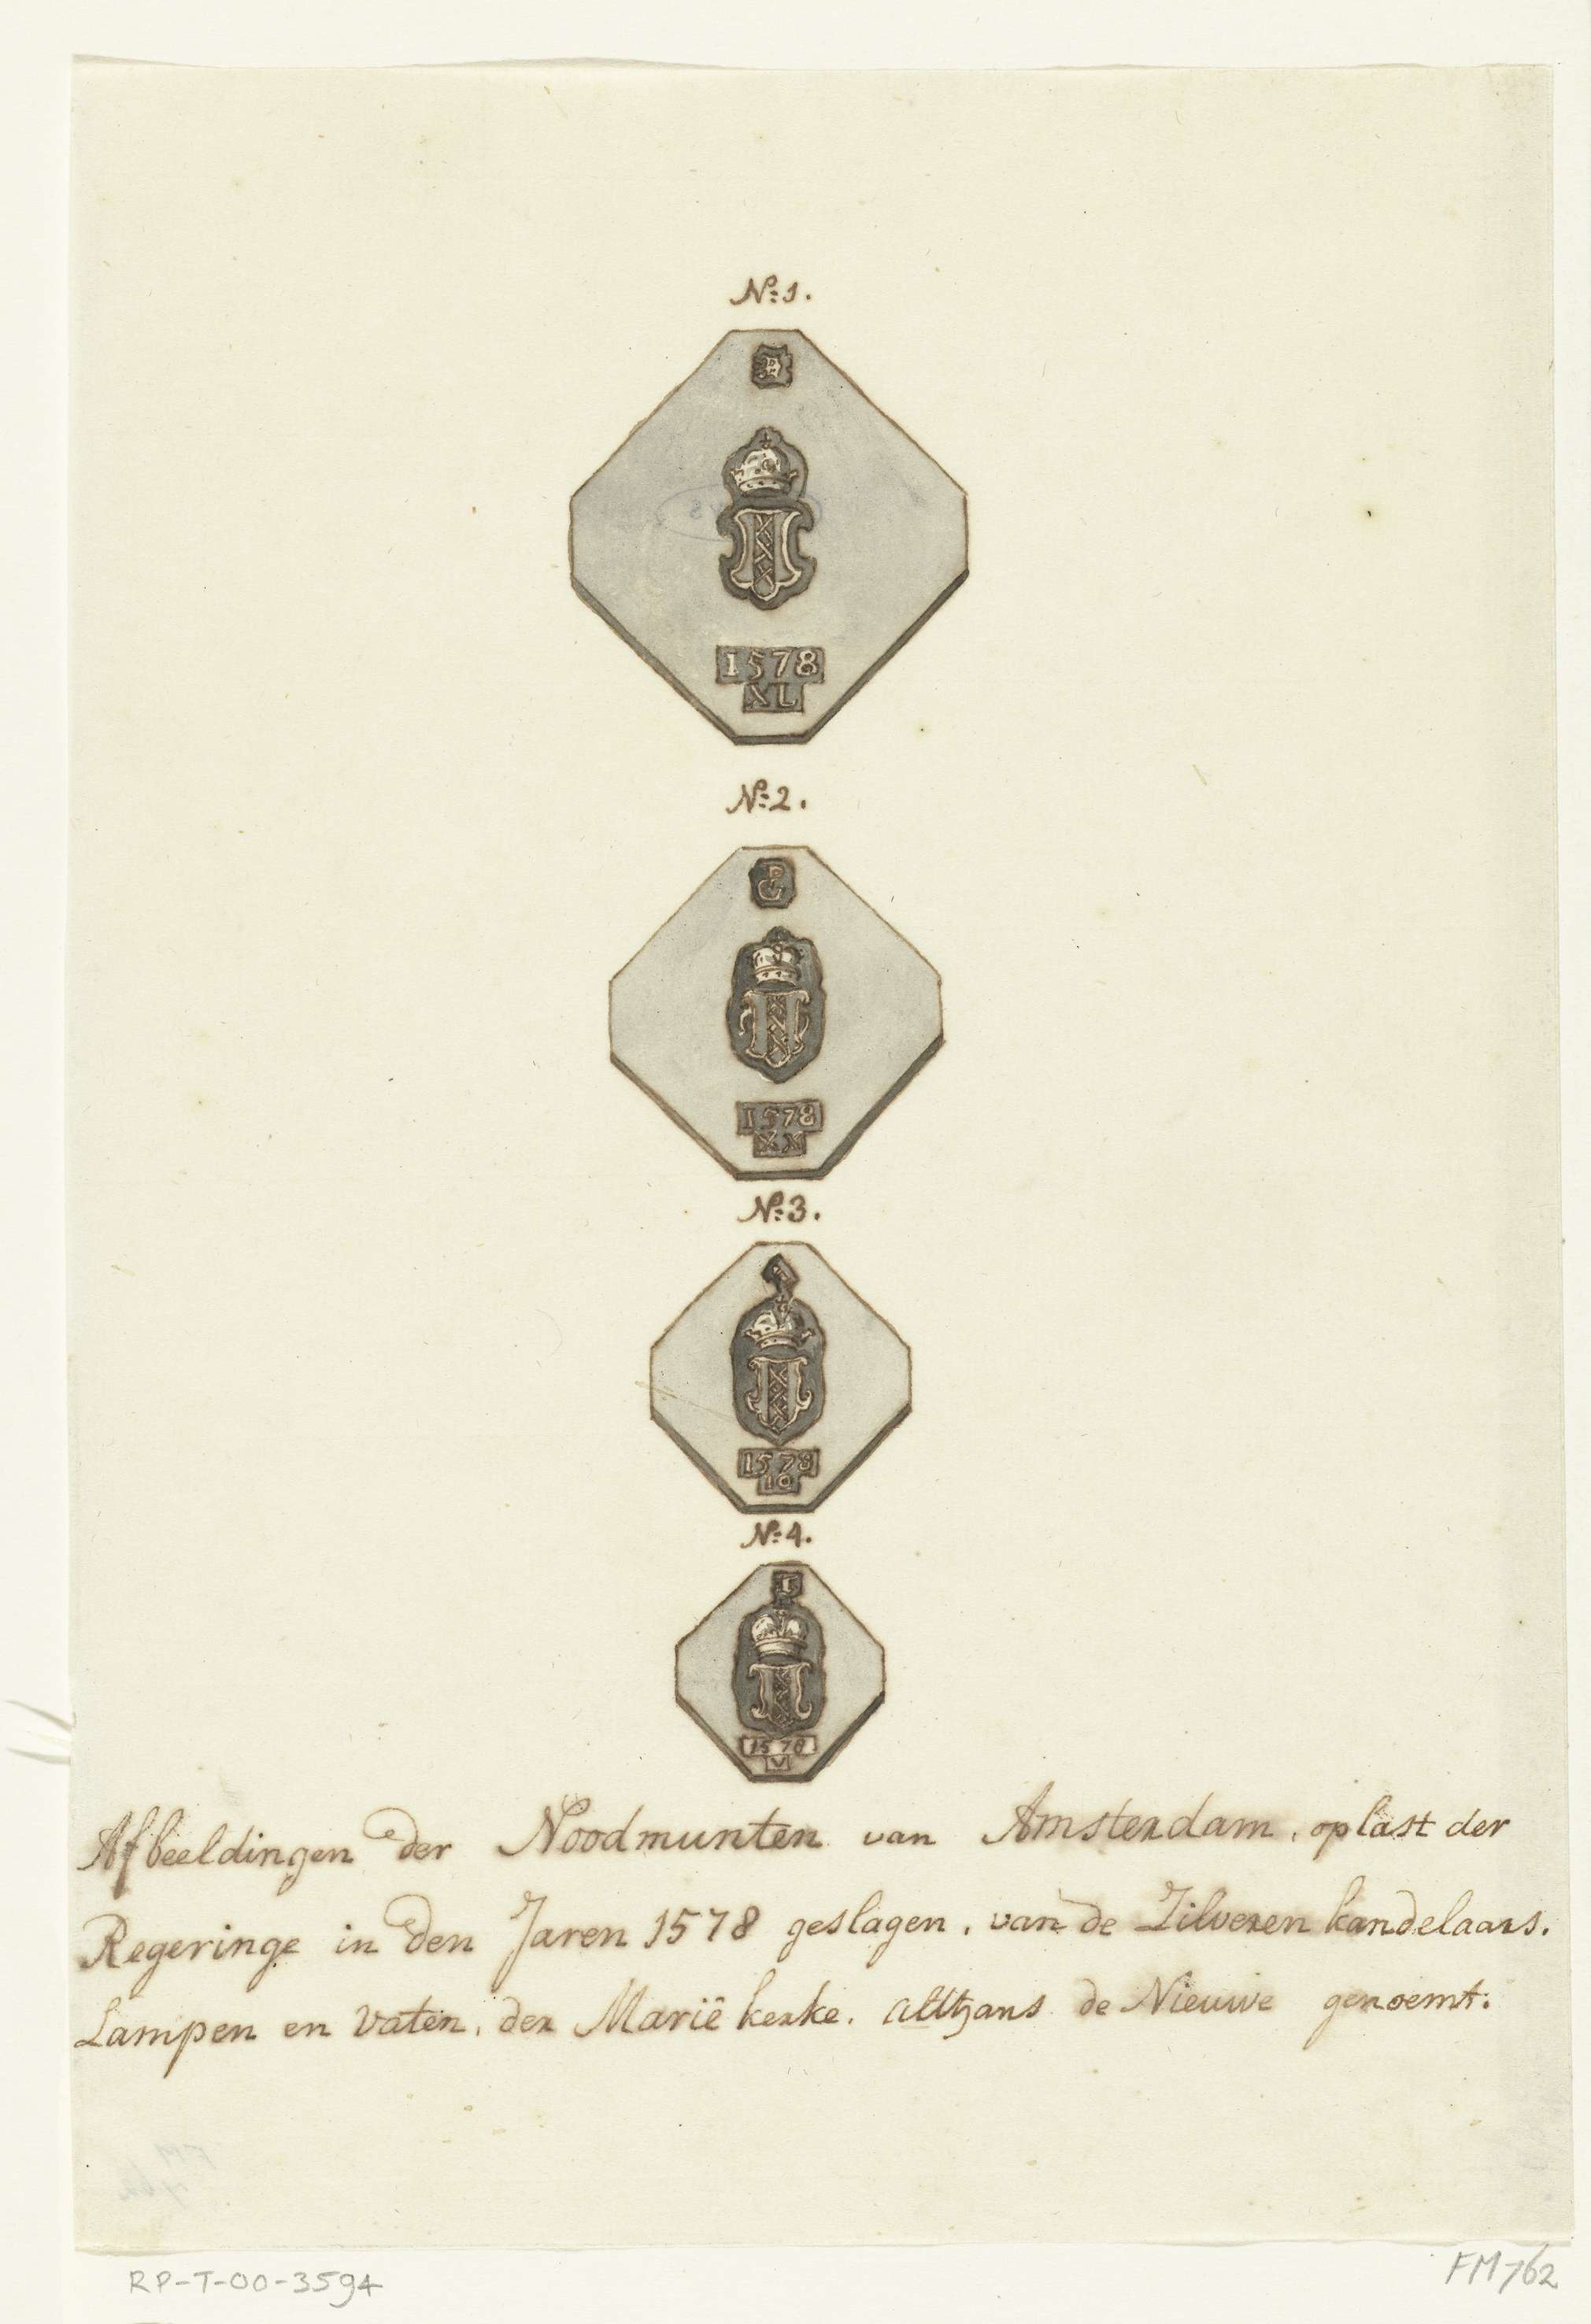 N:o 1.
1578
XL
N:o 2.
1578
XX
N:o 3.
1578
10
N:o 4.
I
1578
V
Afbeeldingen der Noodmunten van Amsterdam, op last der
Regeringe in den Jaren 1578 geslagen, van de Zilveren kandelaars.
Lampen en vaten, der Marië kerke. althans de Nieuwe genoemt.
RP-T-00-3594
FM 762